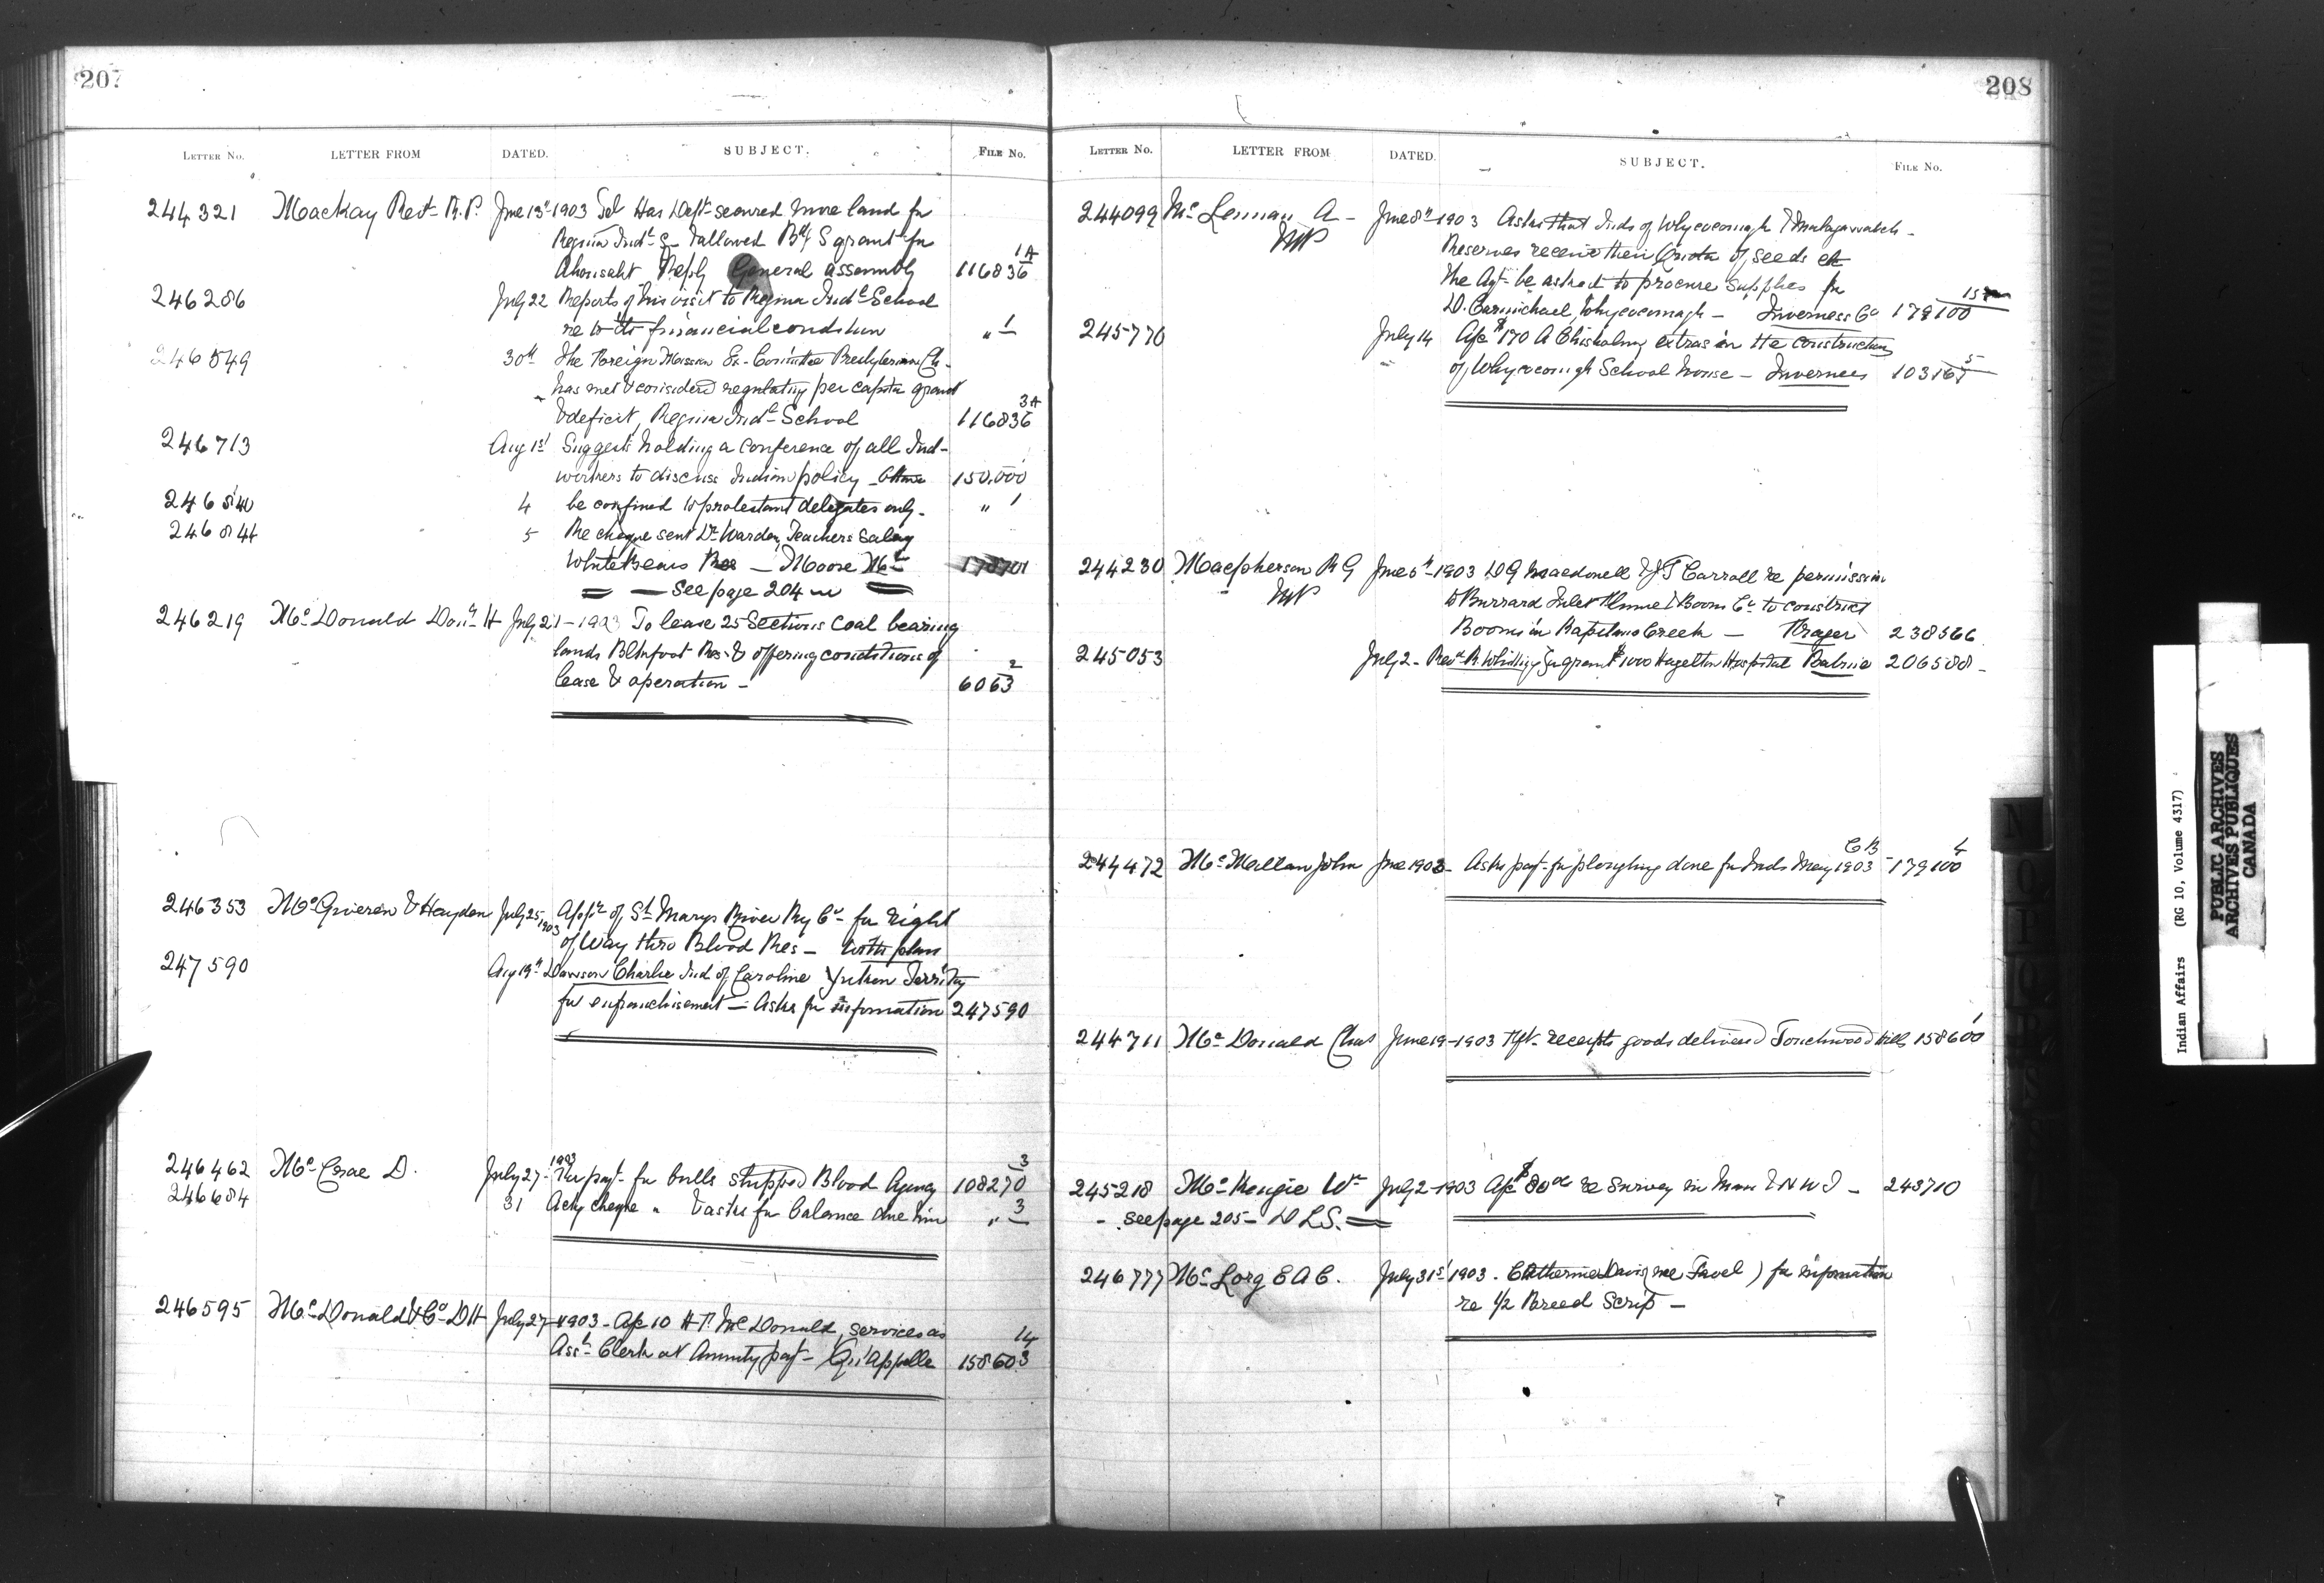 207
LETTER No. LETTER FROM DATED. SUBJECT. FILE No.
244321 MacKay Revd R.P. June 13th 1903 Tel Has Dept secured more land for
Regina Indl S & allowed Bdg S grant for
Ahousaht Reply General assembly 116836 1A
246286 July 22 Reports of his visit to Regina Indl School
re to its financial condition " 1
246549 30th The Foreign Mission Ex-Comittee Presbyterian Ch-
has met & considered regulating per capita grant
& deficit, Regina Indl School 116836 3A
246713 Aug 1st Suggests holding a conference of all Ind-
workers to discuss Indian policy - Ottawa 150.000 1
246840 4 be confined to protestant delegates only - " 1
246844 5 Re cheque sent Dr Warden, Teachers Salary
White Bears Res - Moose Mt
See page 204
246219 McDonald Don H July 21-1903 To lease 25 Sections Coal bearing
lands Blkfoot Res & offering conditions of
lease & operation - 6063 2
246353 McGiverin & Hayden July 25, 1903 Appln of St Marys River Ry Co for right
of Way thro Blood Res - with plan
247590 Aug 19th Dawson Charlie Ind of Caroline Yukon Territy
for enfranchisement - Asks for information 247590
246462 McCrae D. July 27 1903 re payt for bulls shipped Blood Agency 108270 3
246684 31 Ackg cheque " & asks for balance due him " 3
246595 McDonald & Co DH July 27-1903 - A/c 10 H P. McDonald, services as
Asst Clerk at Annuity payt - Qu'Appelle 158603 14
208
LETTER No. LETTER FROM DATED. SUBJECT. FILE No.
244099 McLennan A - June 8th 1903 Asks that Inds of Whycocomagh & Malagawatch -
MP Reserves receive their Quota of seeds etc
The Agt be asked to procure supplies for
D. Carmichael, Whycocomagh - Inverness Co 179100 15
245770 July 14 A/c $170 A Chisholm extras in the construction
of Whycocomagh School house - Inverness 103165 5
244230 Macpherson R G June 5th 1903 D G Macdonell & J T Carroll re permission
MP to Burrard Inlet Flume & Boom Co to construct
Booms in Capilano Creek - Fraser 238566
245053 July 2 - Revd R Whitting for grant $1000 Hagelton Hospital Babine 206588 -
C B
244472 McMillan John June 1903 - Asks payt for ploughing done for Inds May 1903 - 179100 4
244711 McDonald Chas June 19-1903 receipts goods delivered Touchwood Hills 158600 1
245218 McKenzie Wm July 2-1903 A/c $80 re Survey in Man & N W T - 243710
- see page 205 - D L S.
246777 McLorg E A C. July 31st 1903. Catherine Davis (nee Favel) for information
re 1/2 Breed Scrip -
Indian Affairs (RG 10, Volume 4317)
PUBLIC ARCHIVES
ARCHIVES PUBLIQUES
CANADA